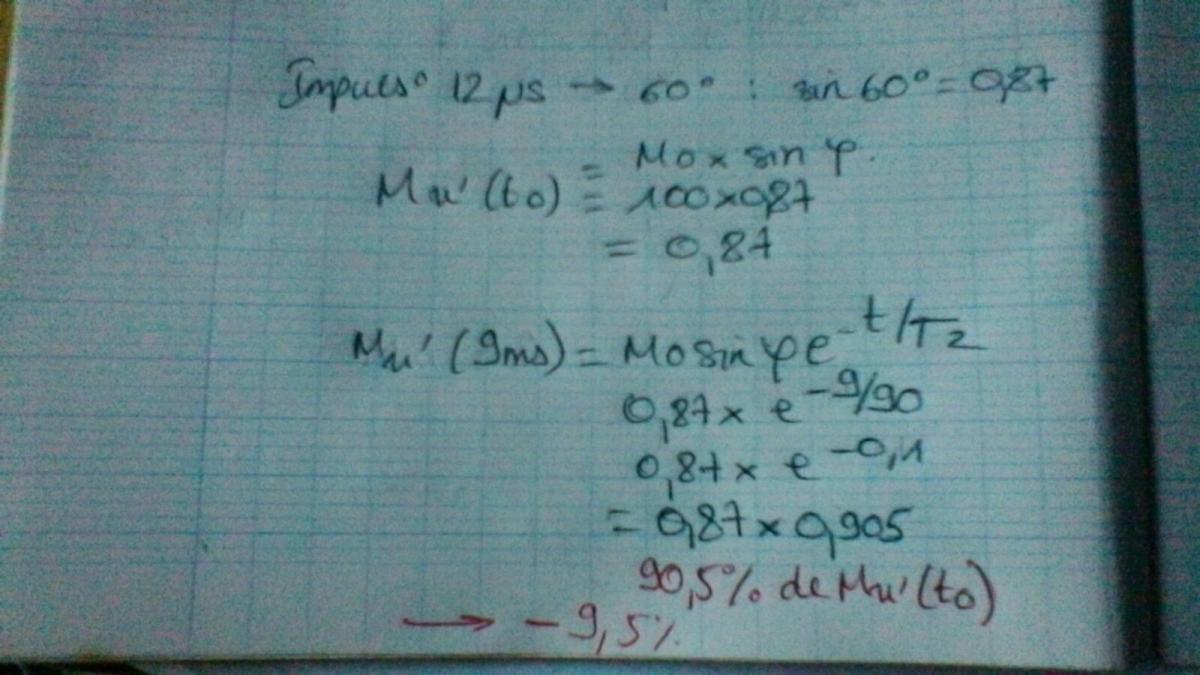 Impuls° 12 µs → 60° : sin 60° = 0,87
= M0 x sin φ.
Mx' (t0) = 100 x 0,87
= 0,87
Mx' (9ms) = M0 sin φ e^-t/T2
0,87 x e^-9/90
0,87 x e^-0,1
= 0,87 x 0,905
90,5% de Mx' (t0)
→ - 9,5%